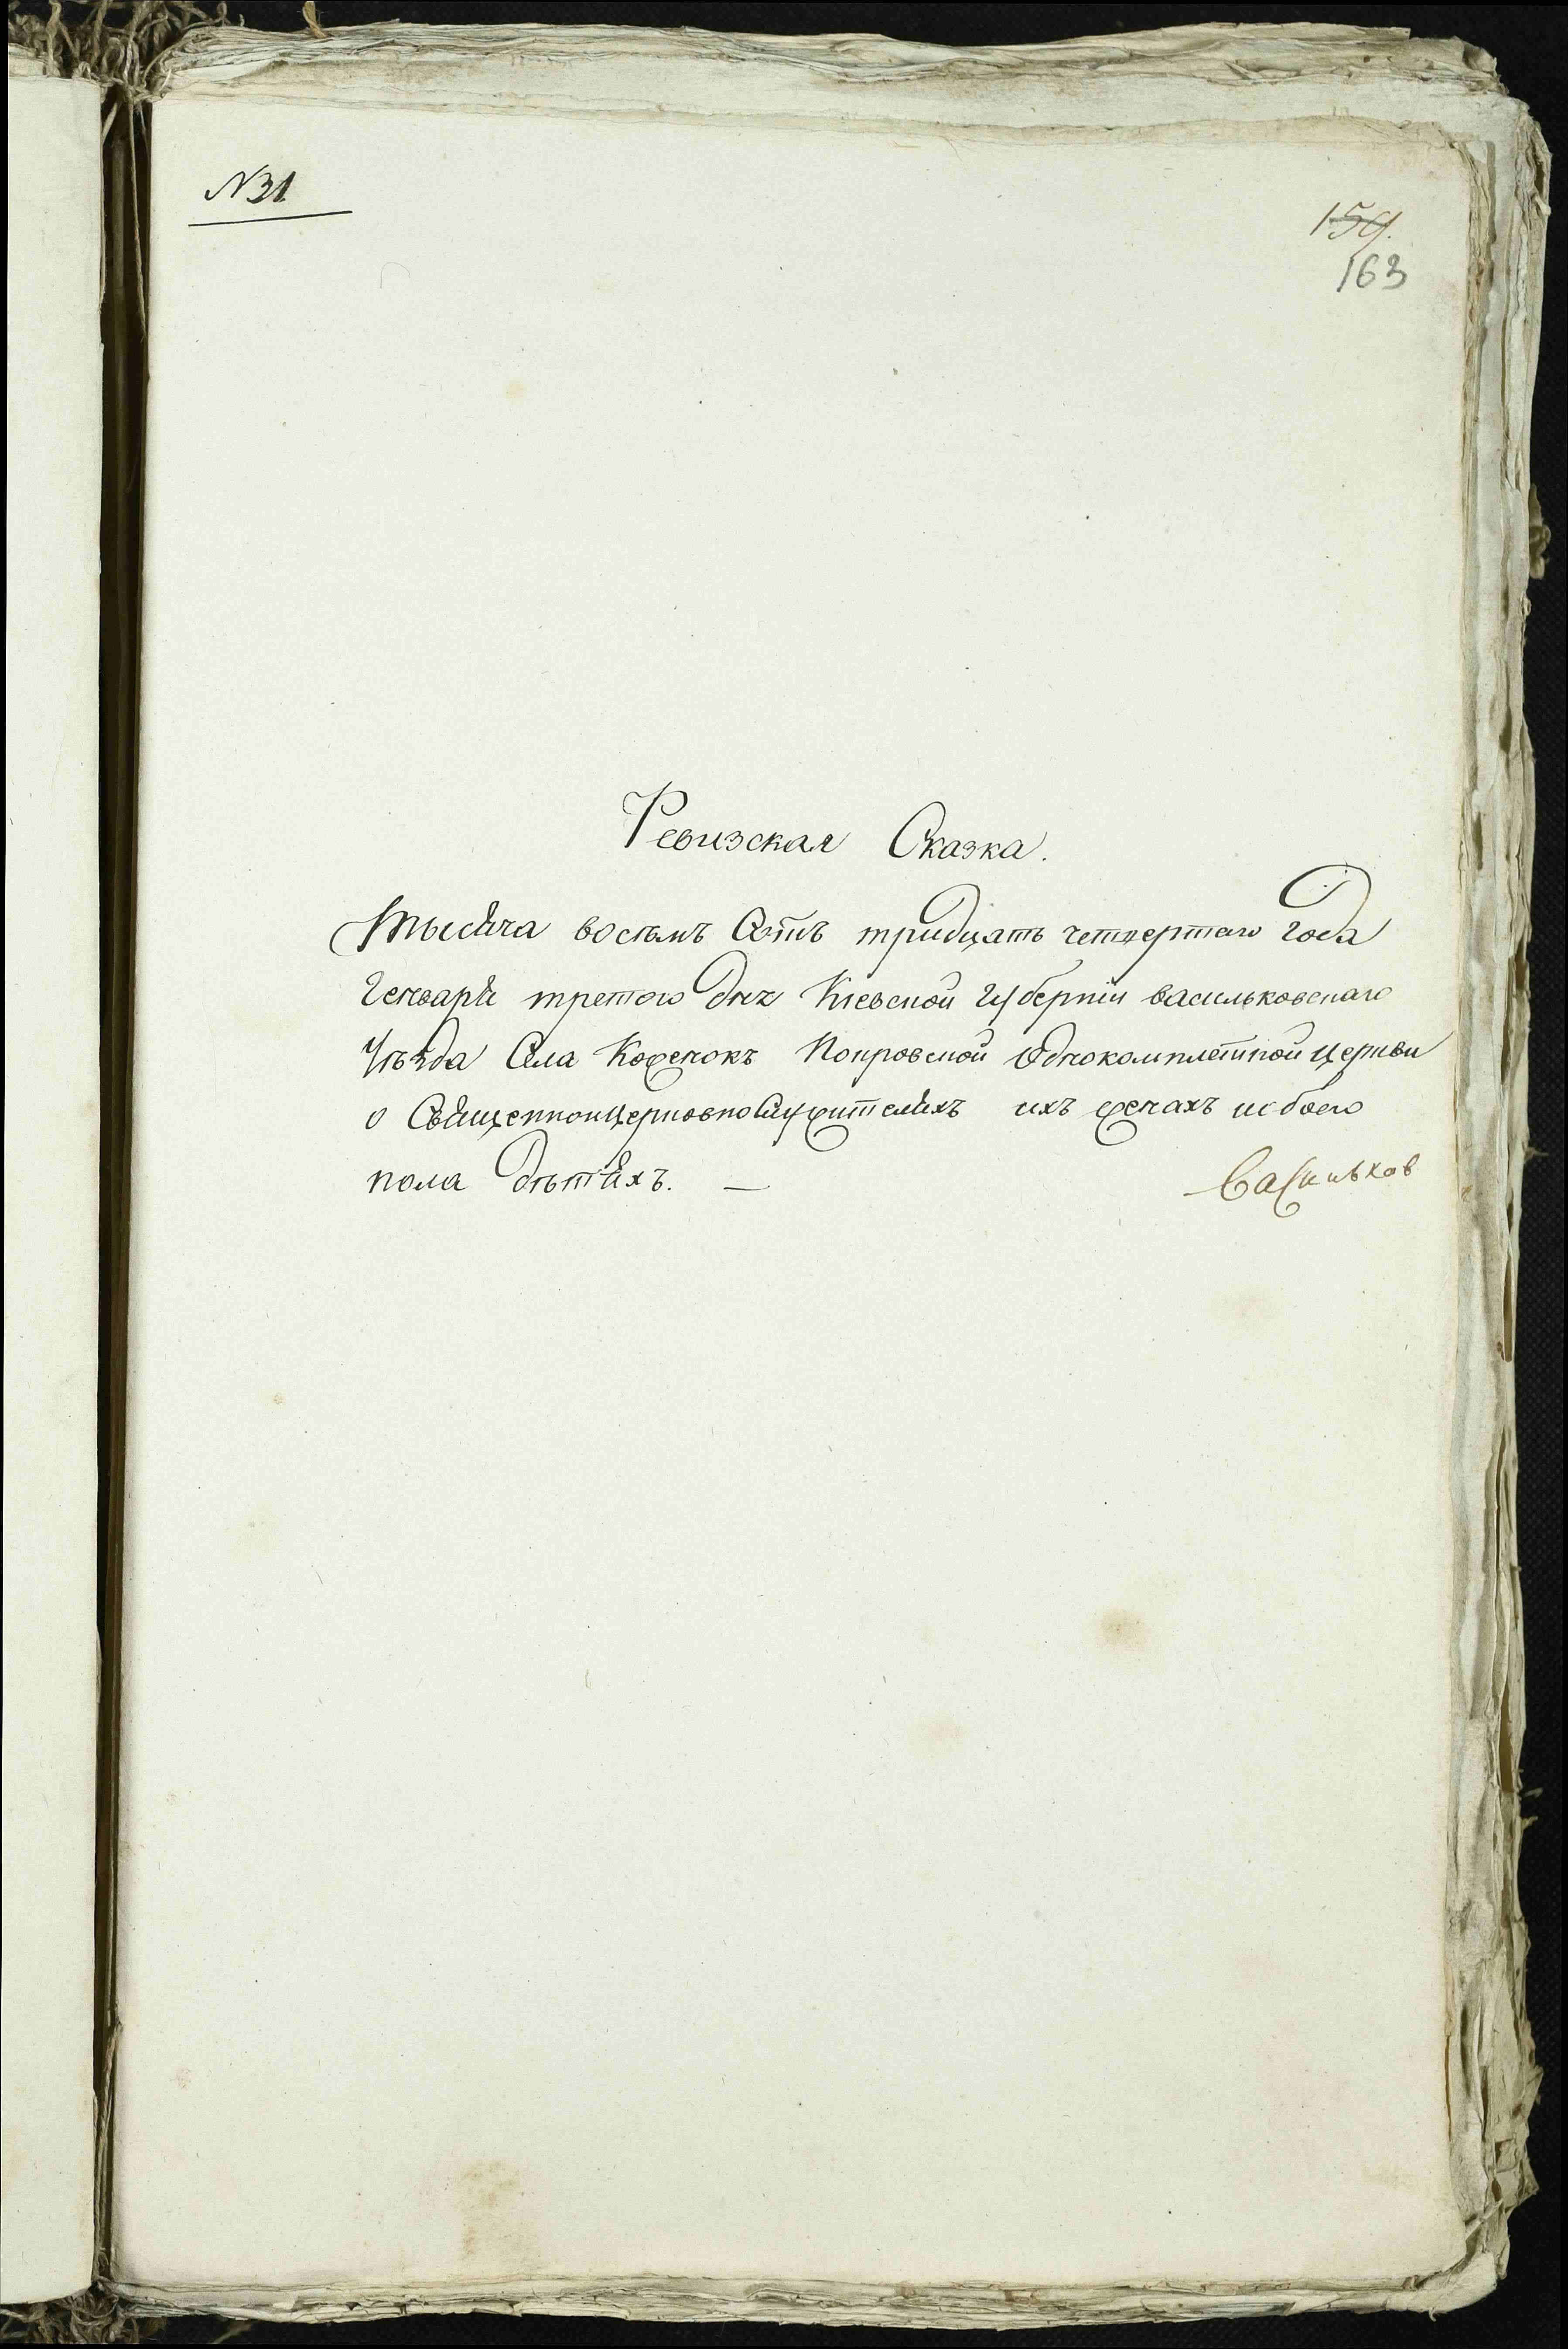 №31
159.
163
Ревизская Сказка.
Тысяча восемъ Сотъ тридцать четвертаго года
Генваря третого дня Кіевской Губерніи васильковскаго
Уѣзда Села Кожснокъ Покровской Однокомплетной церкви
о Священноицерковнослужителяхъ ихъ женахъ иобоего
пола дѣтяхъ. —
Васильков